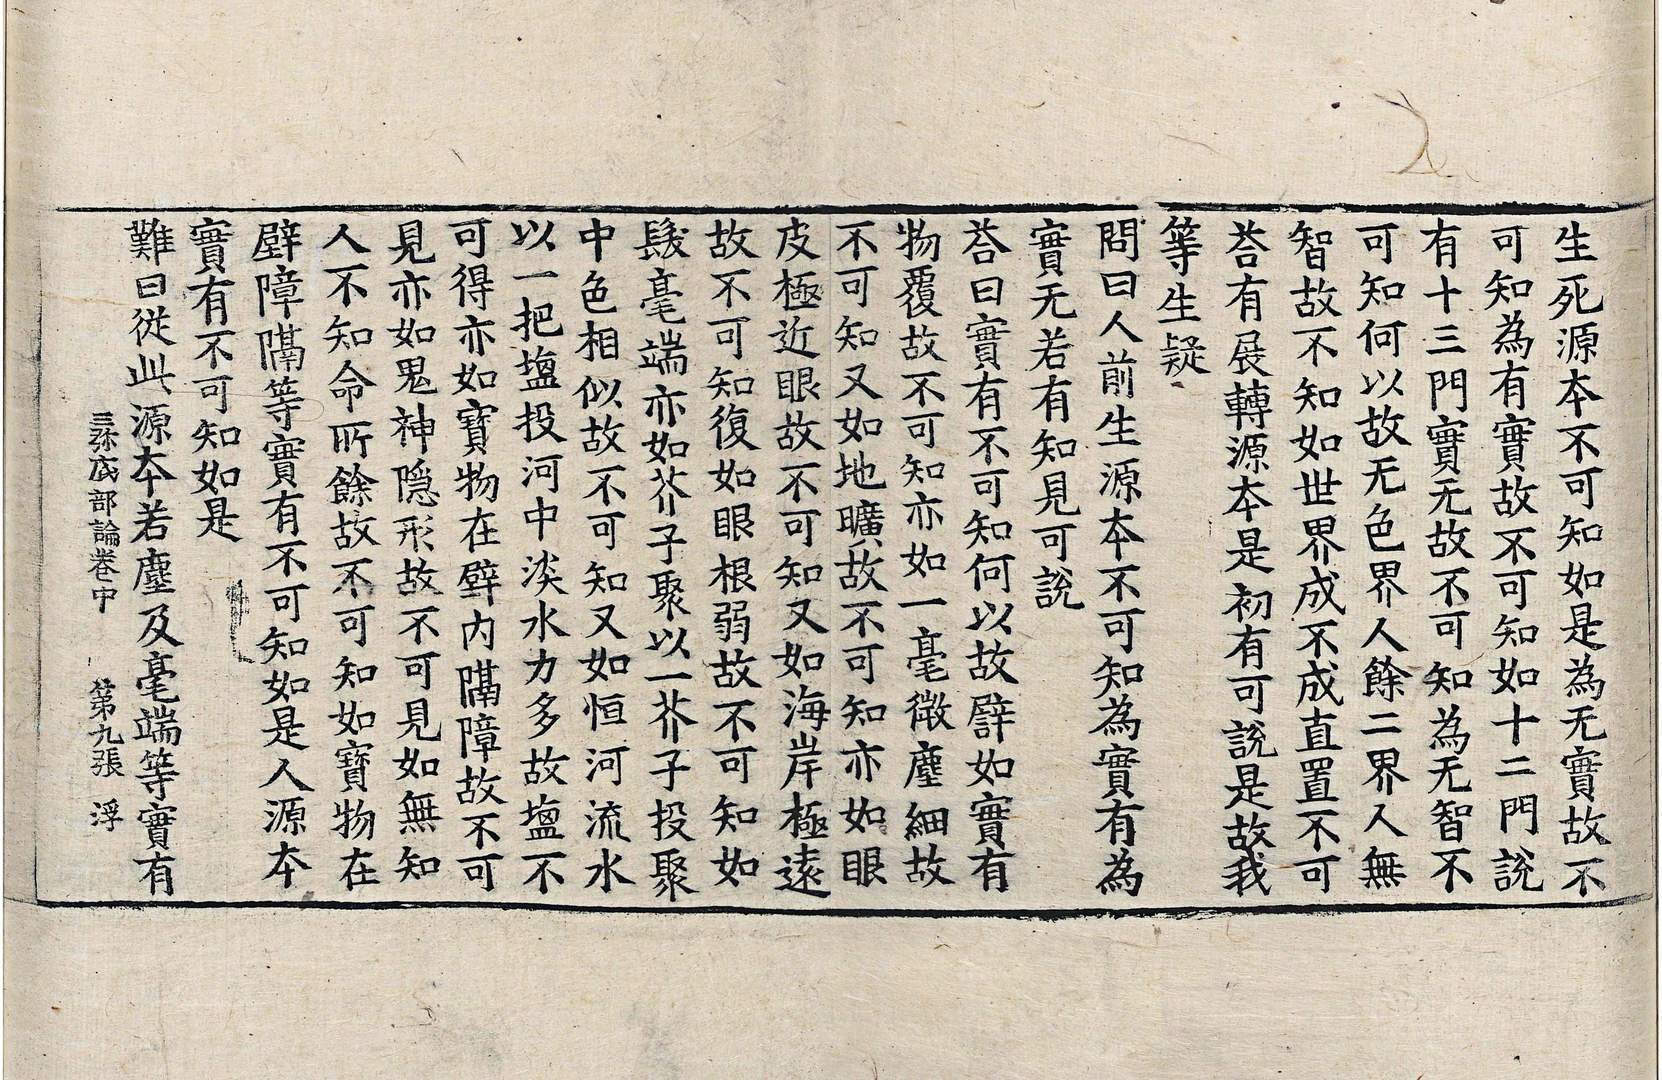 生死源本不可知如是為无實故不
可知為有實故不可知如十二門說
有十三門實无故不可知為无智不
可知何以故无色界人餘二界人無
智故不知如世界成不成直置不可
荅有展轉源本是初有可說是故我
等生疑
問曰人前生源本不可知為實有為
實无若有知見可說
荅曰實有不可知何以故譬如實有
物覆故不可知亦如一毫微塵細故
不可知又如地曠故不可知亦如眼
皮極近眼故不可知又如海岸極遠
故不可知復如眼根弱故不可知如
髮毫端亦如芥子聚以一芥子投聚
中色相似故不可知又如恒河流水
以一把塩投河中淡水力多故塩不
可得亦如寶物在壁内隔障故不可
見亦如鬼神隠形故不可見如無知
人不知命所餘故不可知如寶物在
壁障隔等實有不可知如是人源本
實有不可知如是
難曰從此源本若塵及毫端等實有
三弥底部論卷中 第九張 浮